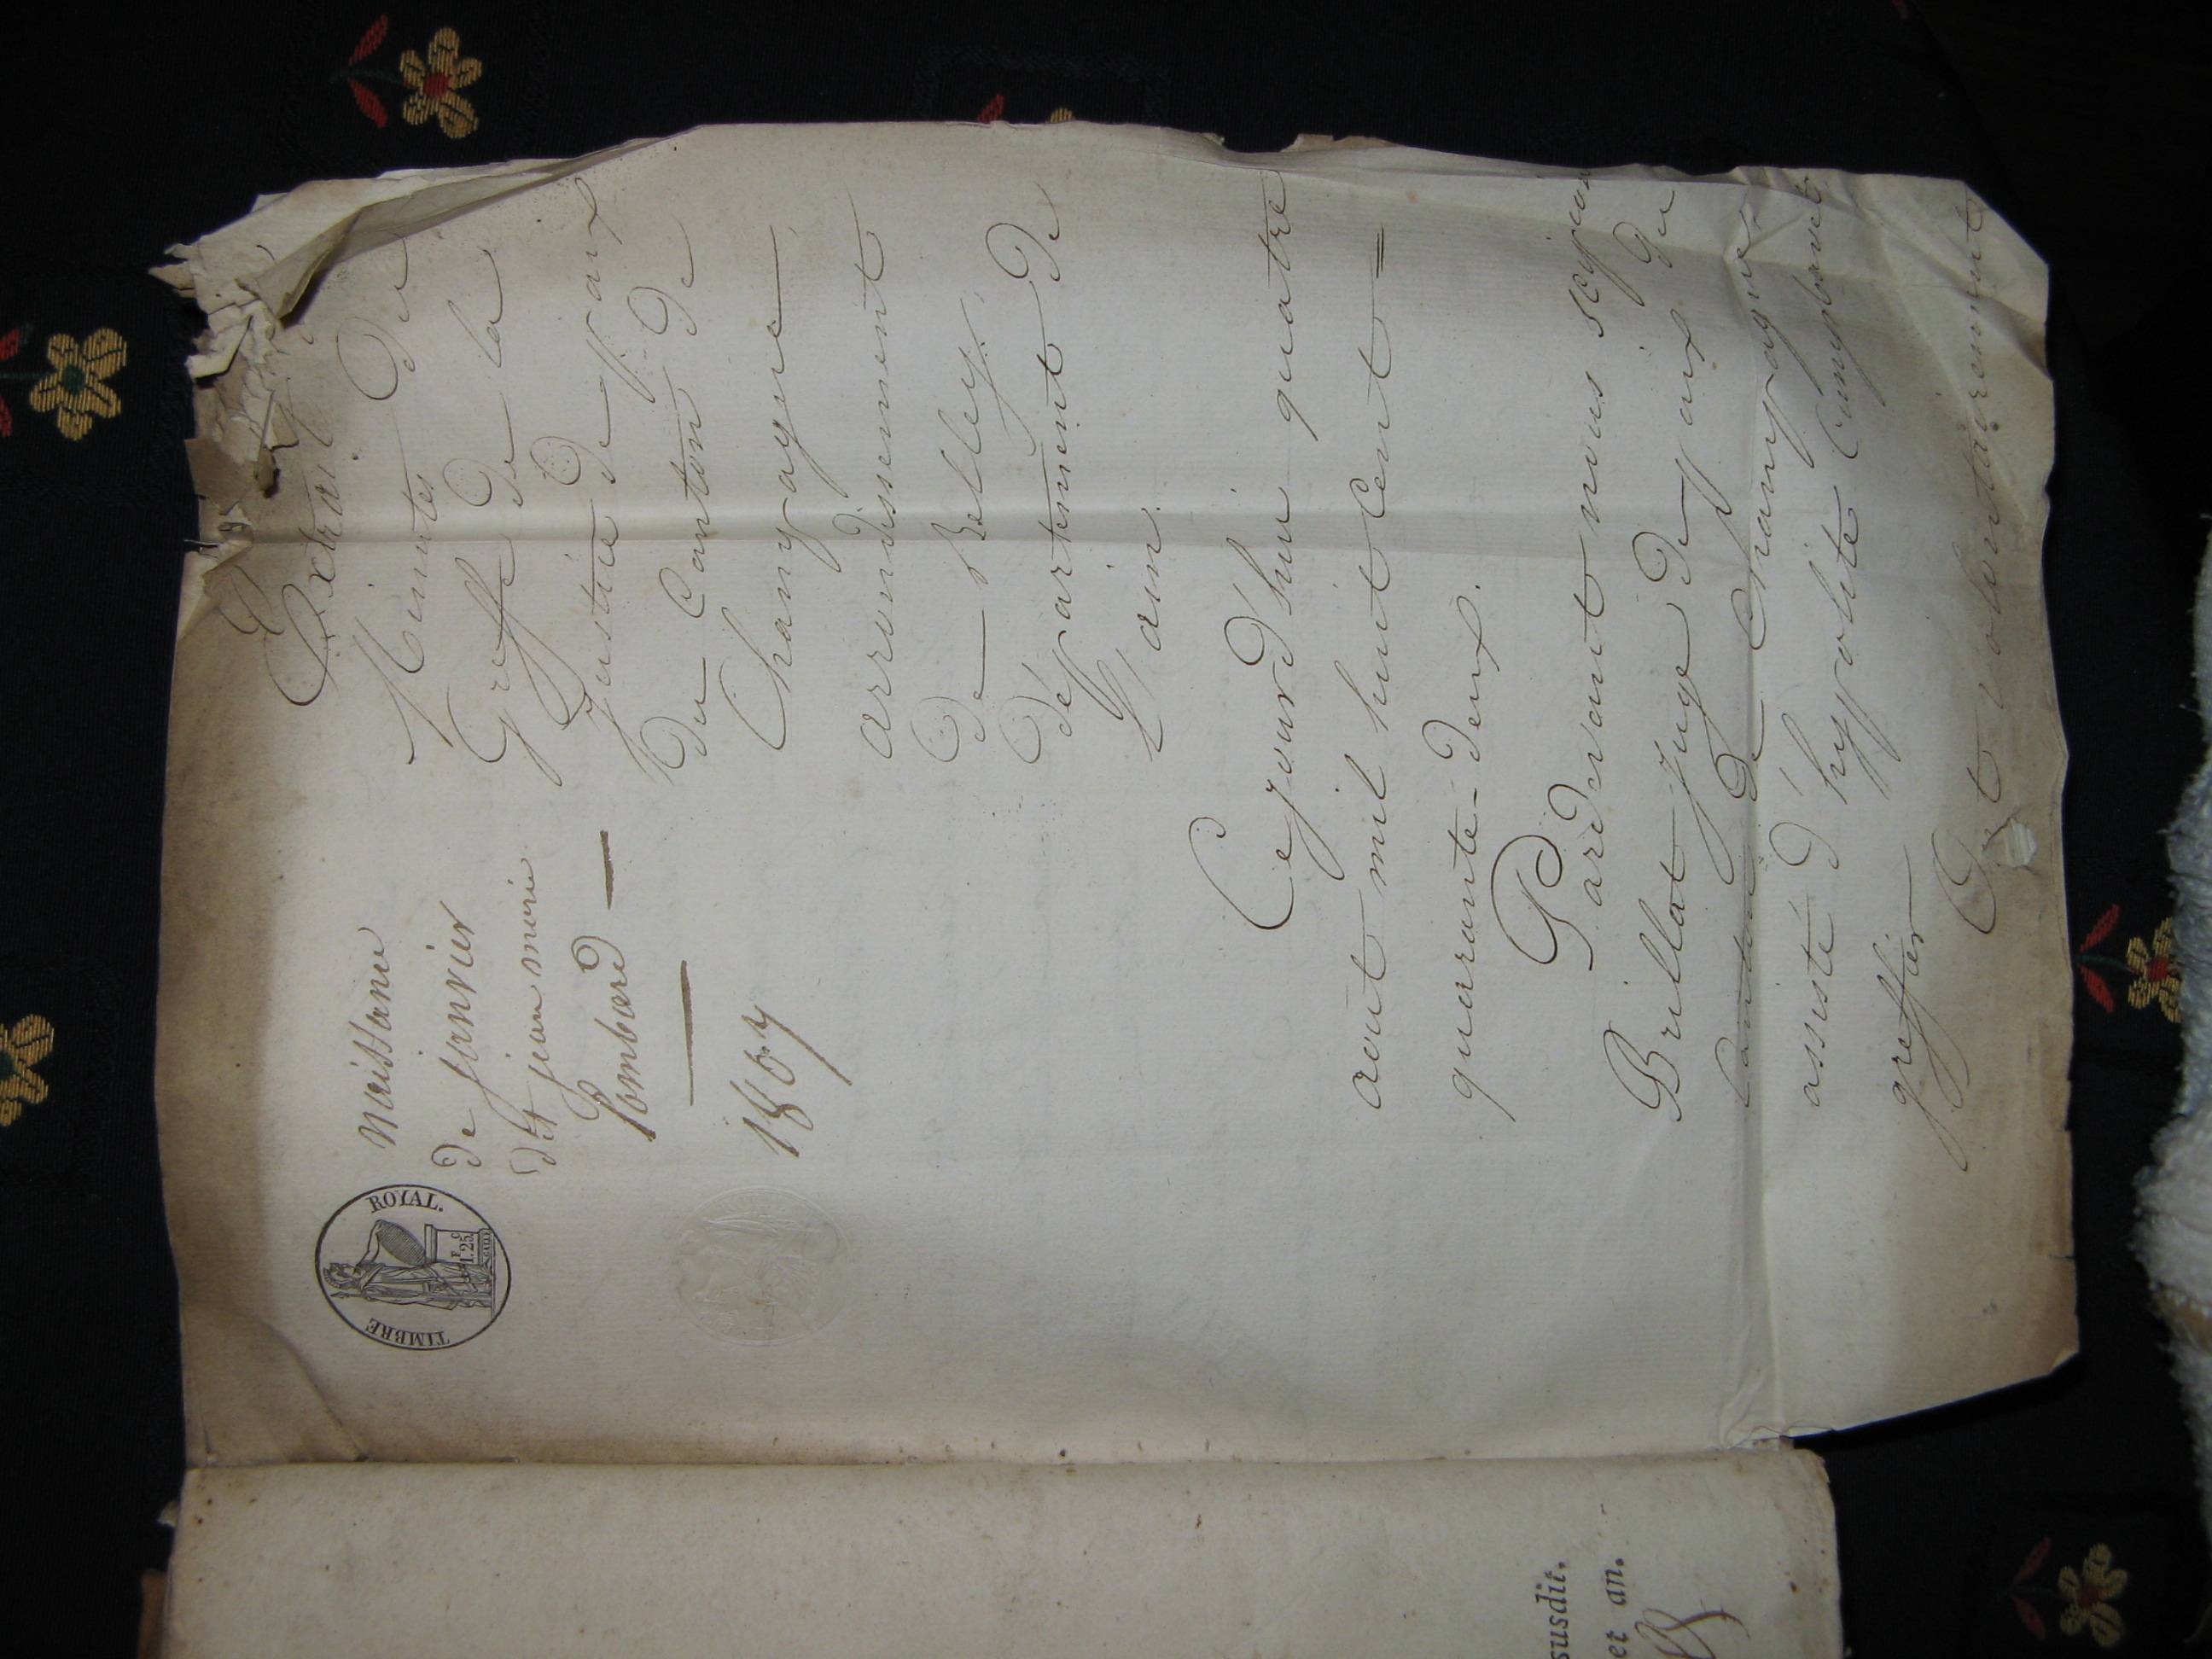 TIMBRE ROYAL.
1.25
F C
naissance
de janvier
dit jean marie
Lombard
1807
Extrait des
Minutes du
Greffe de la
justice de paix
du Canton de
Champagne
arrondissement
de Belley,
département de
L'ain.
Cejourd'hui quatre
aout mil huit Cent =
quarante-deux.
Pardevant nous
Brillat juge de paix du
Canton de Champagne
assisté d'hypolite
greffier
volontairement
susdit.
et an.